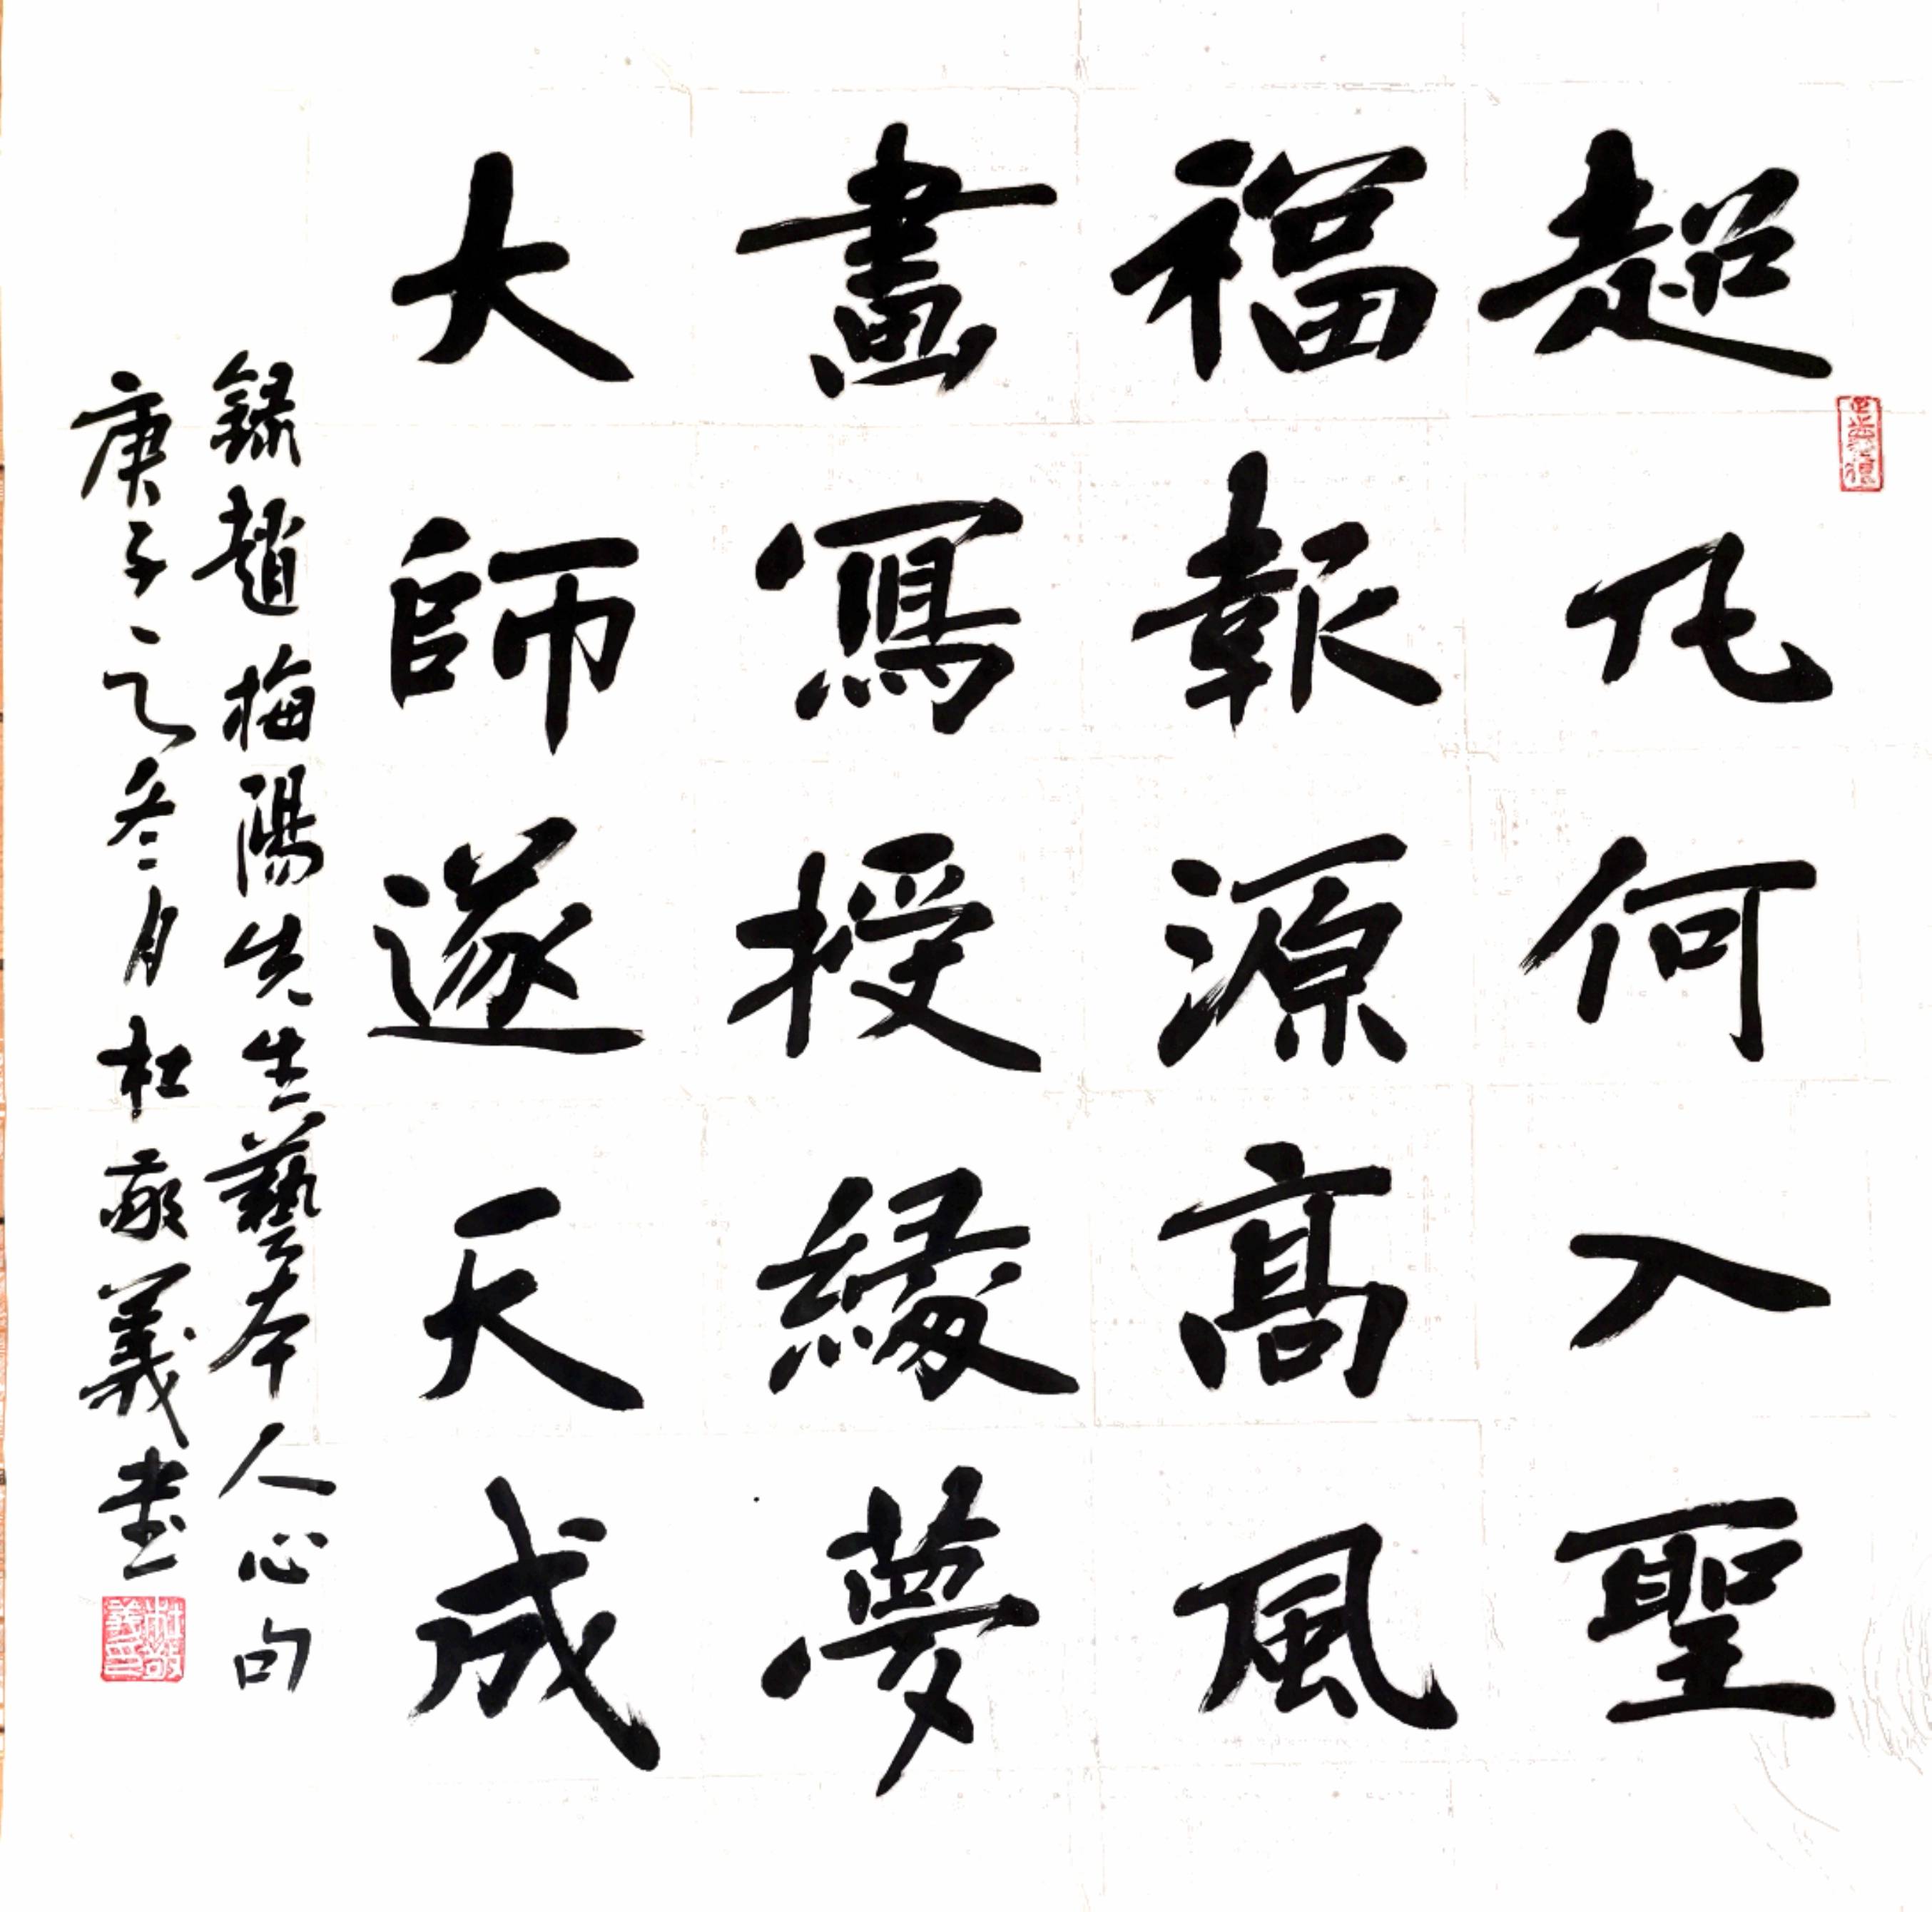 超凡何入聖
福報源高風
畫寫授緣夢
大師遂天成
錄趙梅陽先生藝本人心句
庚子之冬月杜敬義書
杜敬義印